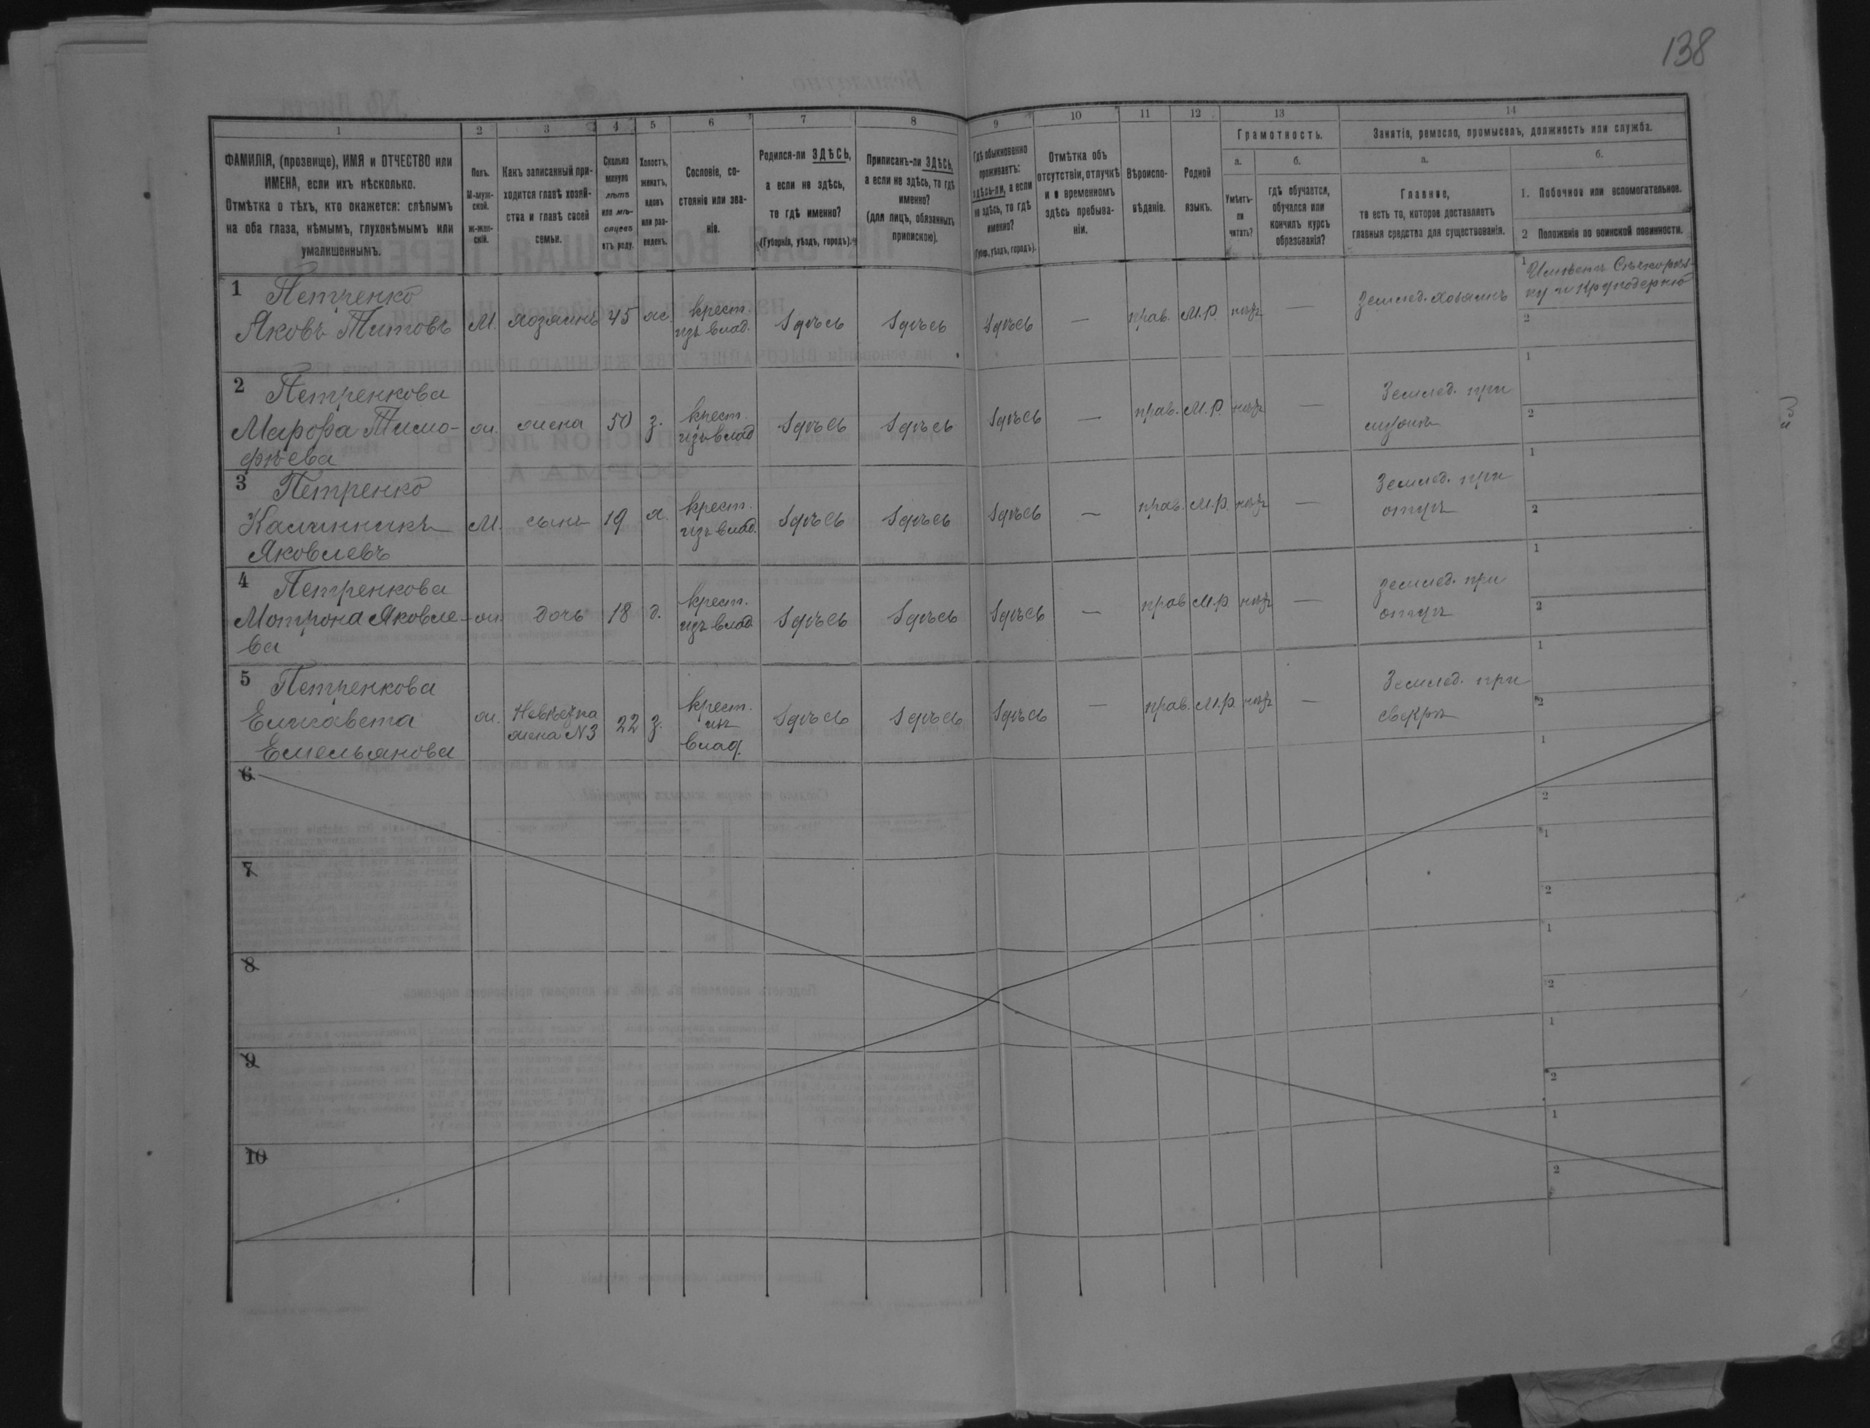 138
1 2 3 4 5 6 7 8 9 10 11 12 13 14
ФАМИЛІЯ, (прозвище), ИМЯ и ОТЧЕСТВО или
ИМЕНА, если ихъ нѣсколько.
Отмѣтка о тѣхъ, кто окажется: слѣпымъ
на оба глаза, нѣмымъ, глухонѣмымъ или
умалишеннымъ.
Полъ.
М-муж-
ской.
ж-жен-
скій.
Какъ записанный при-
ходится главѣ хозяй-
ства и главѣ своей
семьи.
Сколько
минуло
лѣтъ
или мѣ-
сяцевъ
отъ роду.
Холостъ,
женатъ,
вдовъ
или раз-
веденъ.
Сословіе, со-
стояніе или зва-
ніе.
Родился-ли ЗДѢСЬ,
а если не здѣсь,
то гдѣ именно?
(Губернія, уѣздъ, городъ).
Приписанъ-ли ЗДѢСЬ,
а если не здѣсь, то гдѣ
именно?
(для лицъ, обязанныхъ
припискою).
Гдѣ обыкновенно
проживаетъ:
здѣсь-ли, а если
не здѣсь, то гдѣ
именно?
(Губер., уѣздъ, городъ).
Отмѣтка объ
отсутствіи, отлучкѣ
и о временномъ
здѣсь пребыва-
ніи.
Вѣроиспо-
вѣданіе.
Родной
языкъ.
Грамотность.
а.
Умѣетъ-
ли
читать?
б.
гдѣ обучается,
обучался или
кончилъ курсъ
образованія?
Занятіе, ремесло, промыселъ, должность или служба.
а.
Главное,
то есть то, которое доставляетъ
главныя средства для существованія.
б.
1. Побочное или вспомогательное.
2 Положеніе по воинской повинности.
1 Петренко
Яковъ Титовъ М. хозяинъ 45 ж. крест. изъ влад. Здѣсь Здѣсь Здѣсь — прав. М.Р. нѣтъ — Землед. хозяинъ
1
2
2 Петренкова
Марфа Тимо-
фѣева ж. жена 50 з. крест. изъ влад Здѣсь Здѣсь Здѣсь — прав. М.Р. нѣтъ — Землед. при мужѣ
1
2
3 Петренко
Калинникъ
Яковлевъ М. сынъ 19 ж. крест. изъ влад. Здѣсь Здѣсь Здѣсь — прав. М.Р. нѣтъ — Землед. при отцѣ
1
2
4 Петренкова
Мотрона Яковле-
ва ж. дочь 18 д. крест. изъ влад Здѣсь Здѣсь Здѣсь — прав М.Р нѣтъ — Землед. при отцѣ
1
2
5 Петренкова
Елисавета
Емельянова ж. Невѣстка жена №3 22 з. крест. изъ влад. Здѣсь Здѣсь Здѣсь — прав. М.Р нѣтъ — Землед. при свекрѣ
1
2
6
1
2
7
1
2
8
1
2
9
1
2
10
1
2